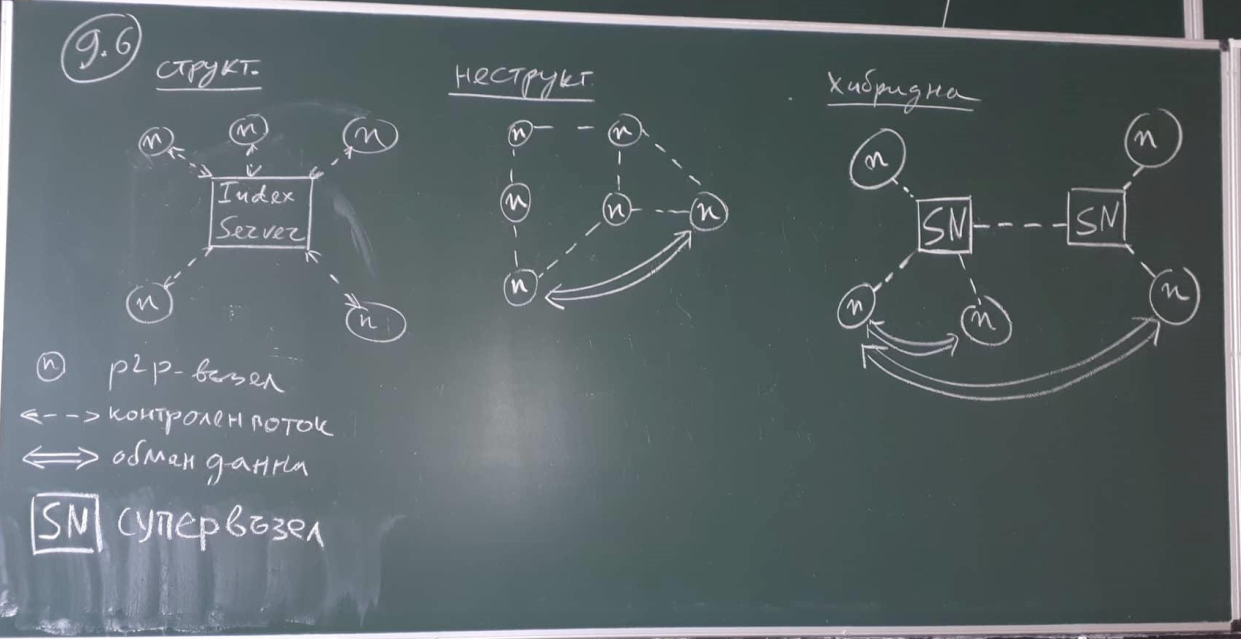 9.6
структ.
n
n
n
Index
Server
n
n
неструкт.
n
n
n
n
n
n
хибридна
n
n
SN
SN
n
n
n
n p2p-възел
контролен поток
обмен данни
SN супервъзел